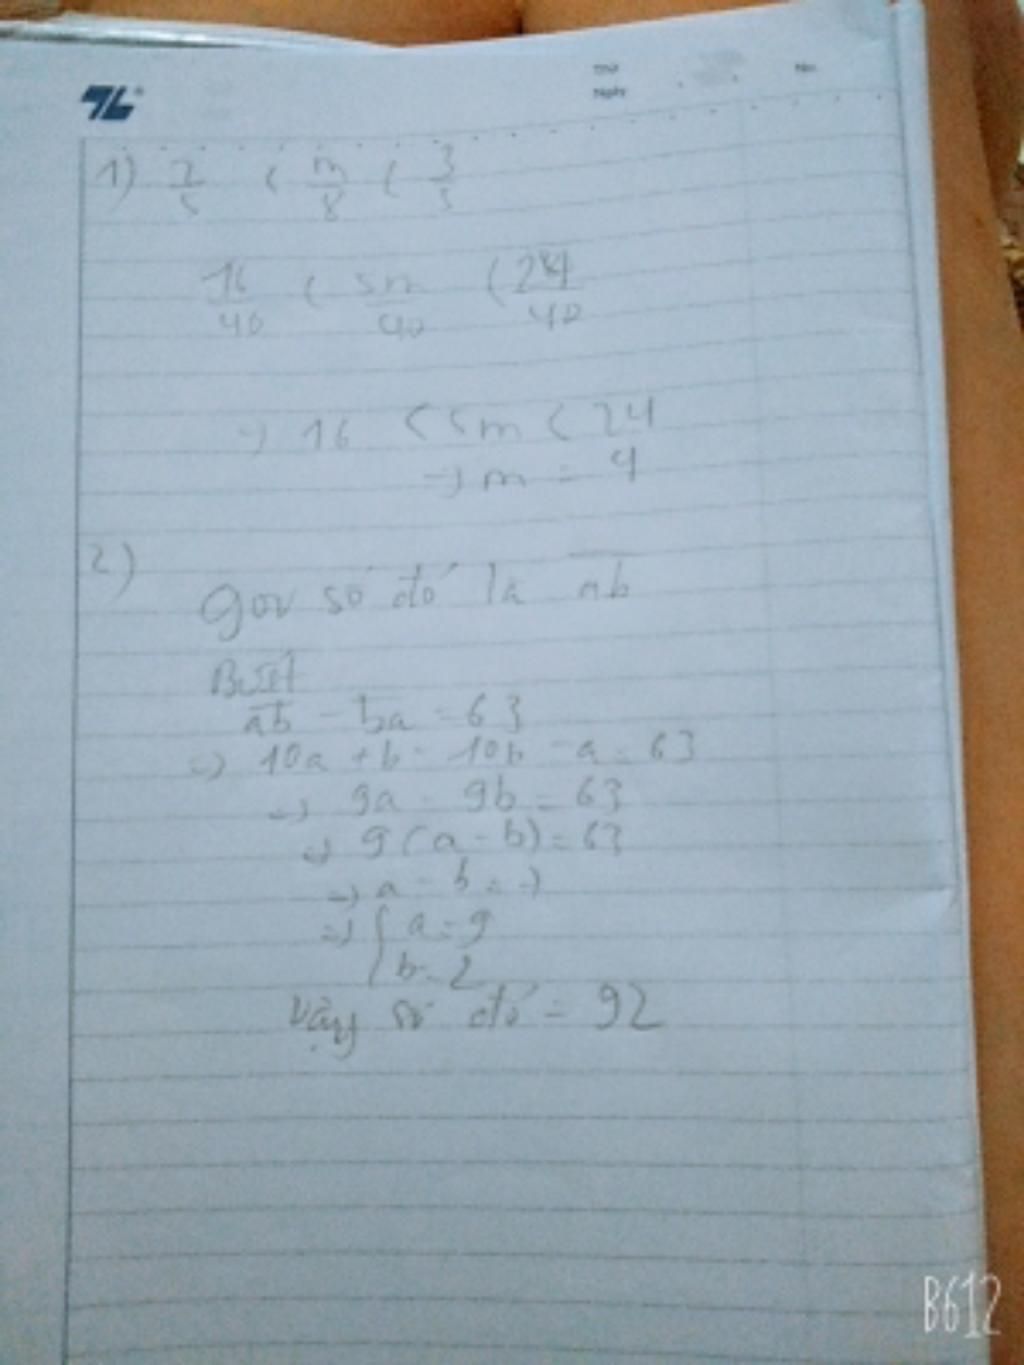 Thứ
Ngày
No.
1) 2/5 < m/8 < 3/5
16/40 < 5m/40 < 24/40
=> 16 < 5m < 24
=> m = 4
2)
Gọi số đó là ab
ab - ba = 63
=> 10a + b - 10b - a = 63
=> 9a - 9b = 63
=> 9(a - b) = 63
=> a - b = 7
=> { a = 9
b = 2
Vậy số đó = 92
B612